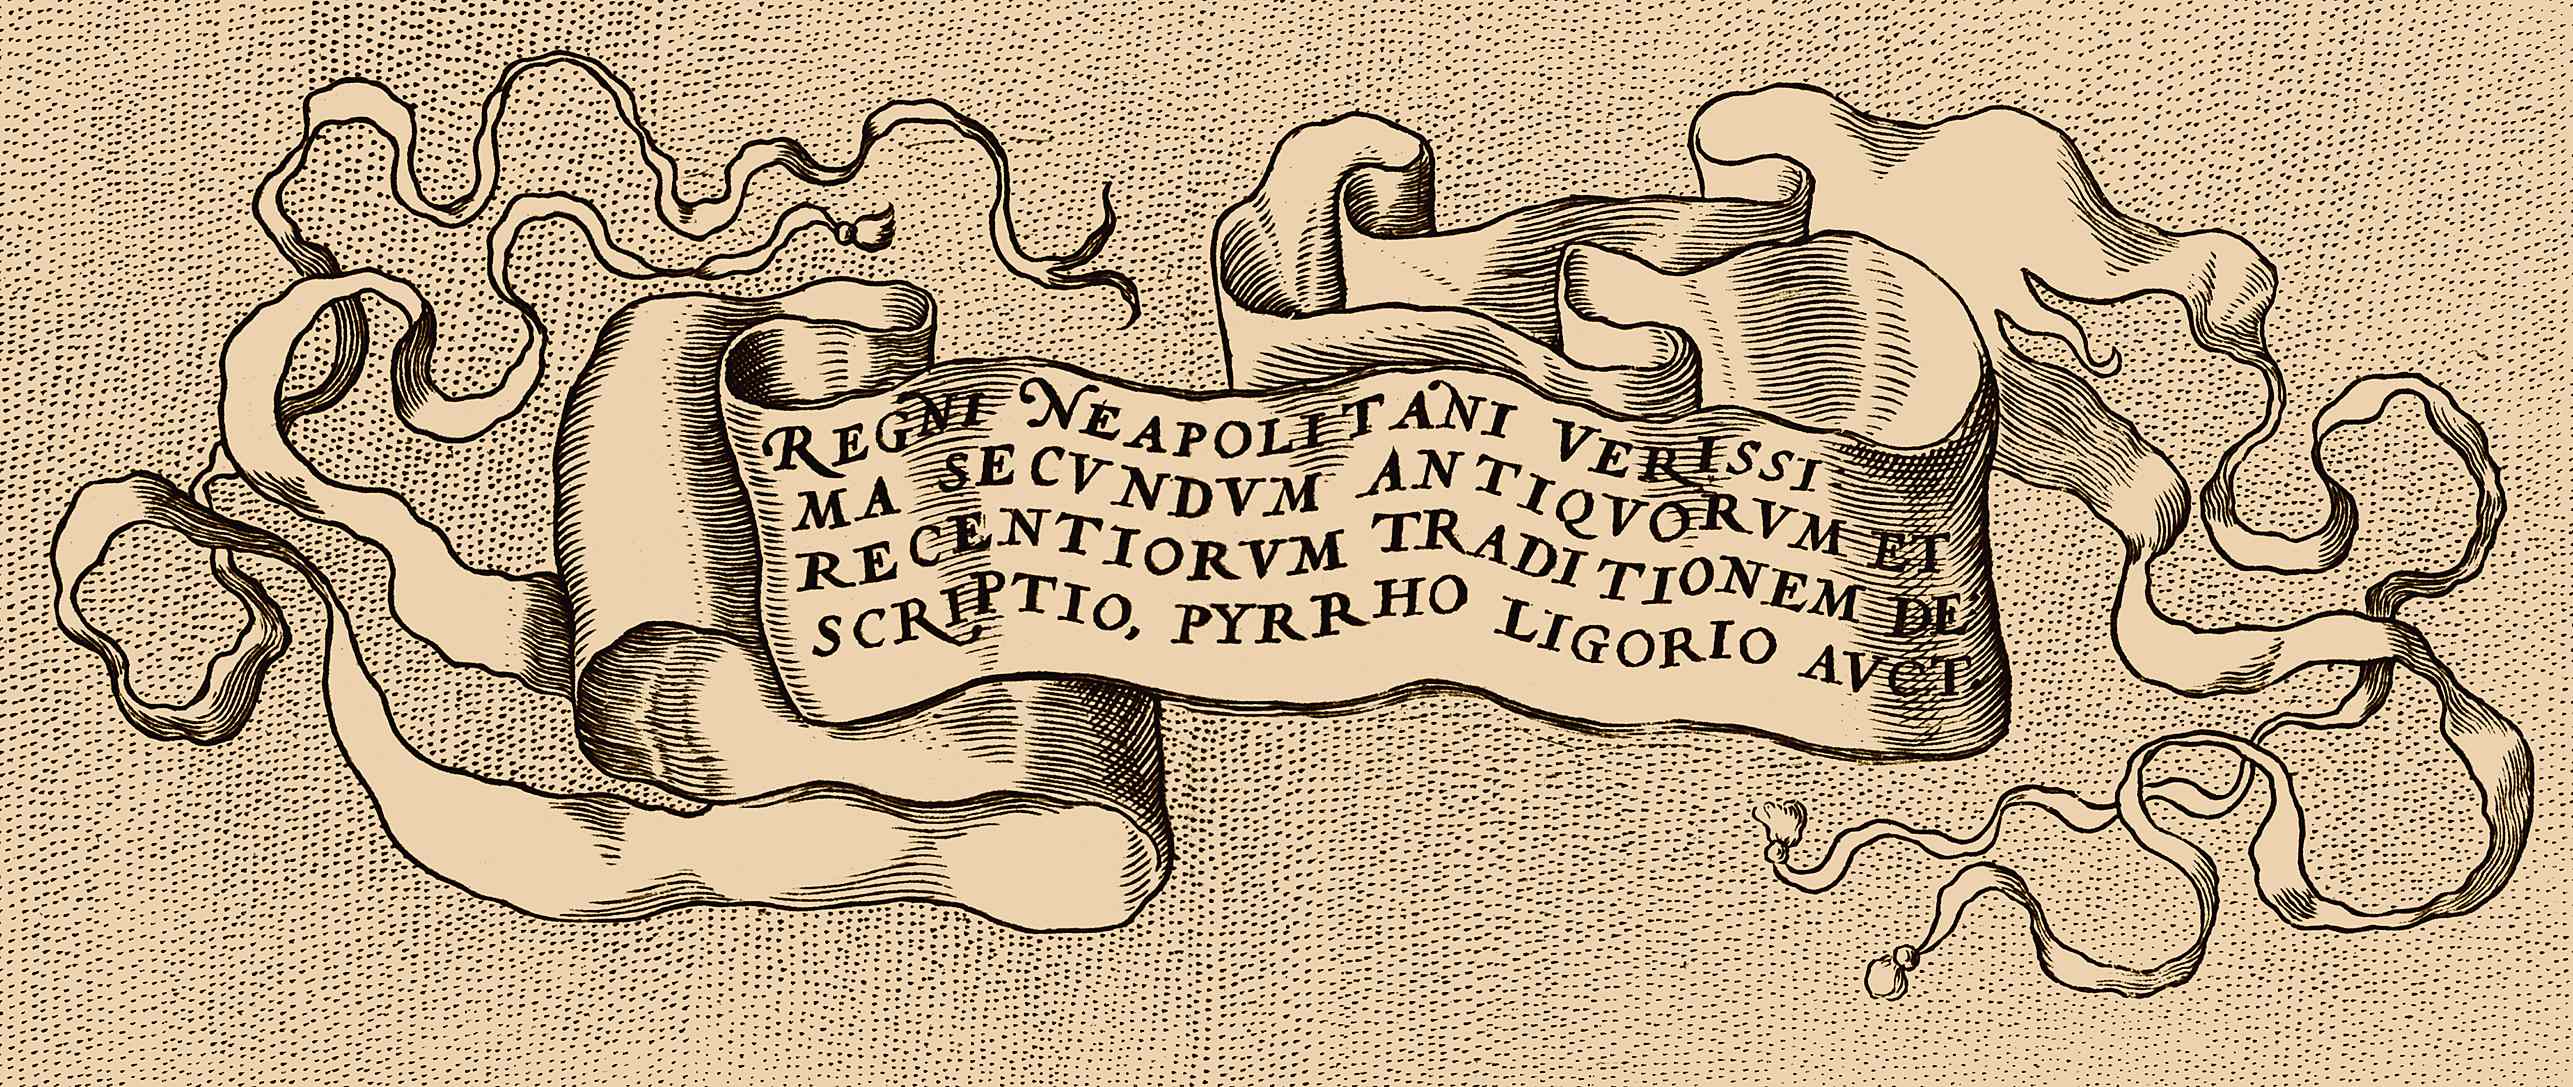 REGNI NEAPOLITANI VERISSI-
MA SECVNDVM ANTIQVORVM ET
RECENTIORVM TRADITIONEM DE
SCRIPTIO, PYRRHO LIGORIO AVCT.